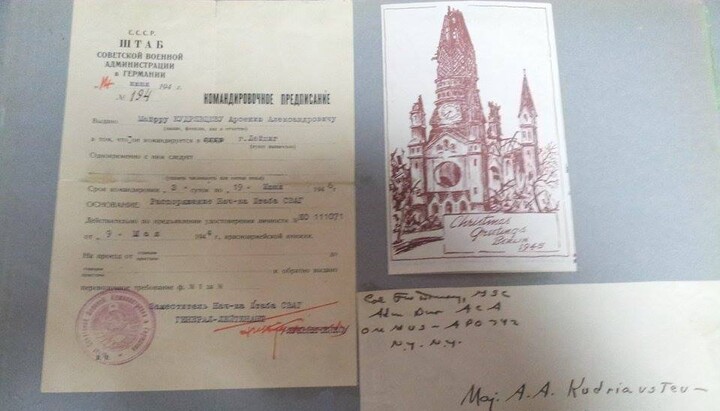 С.С.С.Р.
ШТАБ
СОВЕТСКОЙ ВОЕННОЙ
АДМИНИСТРАЦИИ
в ГЕРМАНИИ
июня 194 г.
№ 194
КОМАНДИРОВОЧНОЕ ПРЕДПИСАНИЕ
Выдано Майору КУДРЯВЦЕВУ Арсению Александровичу
(звание, фамилия, имя и отчество)
в том, что он командируется в г. Лейпциг
Одновременно с ним следует
Срок командировки суток по 19 Июня 194
ОСНОВАНИЕ: Распоряжение Нач-ка Штаба СВАГ
Действительно по предъявлении удостоверения личности № 111071
от 9 Мая 194 г., красноармейской книжки.
На проезд от станции до
станции и обратно выдано
перевозочное требование ф. № 1 за №
Заместитель Нач-ка Штаба СВАГ
ГЕНЕРАЛ-ЛЕЙТЕНАНТ
Christmas
Greetings
Berlin
1945
Col MSC
ACA
OMGUS - APO 742
N.Y. N.Y.
Maj. A.A. Kudriavstev -